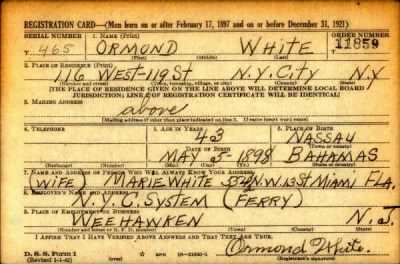 REGISTRATION CARD—(Men born on or after February 17, 1897 and on or before December 31, 1921)
SERIAL NUMBER 1. NAME (Print) ORDER NUMBER
T 465 ORMOND WHITE T 11859
(First) (Middle) (Last)
2. PLACE OF RESIDENCE (Print)
116 WEST-119 St N.Y. City N.Y
(Number and street) (Town, township, village, or city) (County) (State)
[THE PLACE OF RESIDENCE GIVEN ON THE LINE ABOVE WILL DETERMINE LOCAL BOARD
JURISDICTION; LINE 2 OF REGISTRATION CERTIFICATE WILL BE IDENTICAL]
3. MAILING ADDRESS
above
[Mailing address if other than place indicated on line 2. If same insert word same]
4. TELEPHONE 5. AGE IN YEARS 6. PLACE OF BIRTH
43 NASSAU
DATE OF BIRTH (Town or county)
MAY 5- 1898 BAHAMAS
(Exchange) (Number) (Mo.) (Day) (Yr.) (State or country)
7. NAME AND ADDRESS OF PERSON WHO WILL ALWAYS KNOW YOUR ADDRESS
(WIFE MARIE WHITE N.W. 13 St MIAMI FLA.
8. EMPLOYER'S NAME AND ADDRESS
N.Y.C. SYSTEM (FERRY)
9. PLACE OF EMPLOYMENT OR BUSINESS
WEEHAWKEN N.J.
(Number and street or R. F. D. number) (Town) (County) (State)
I AFFIRM THAT I HAVE VERIFIED ABOVE ANSWERS AND THAT THEY ARE TRUE.
D. S. S. Form 1 Ormond White
(Revised 1-1-42) (over) 16-21630-1 (Registrant's signature)